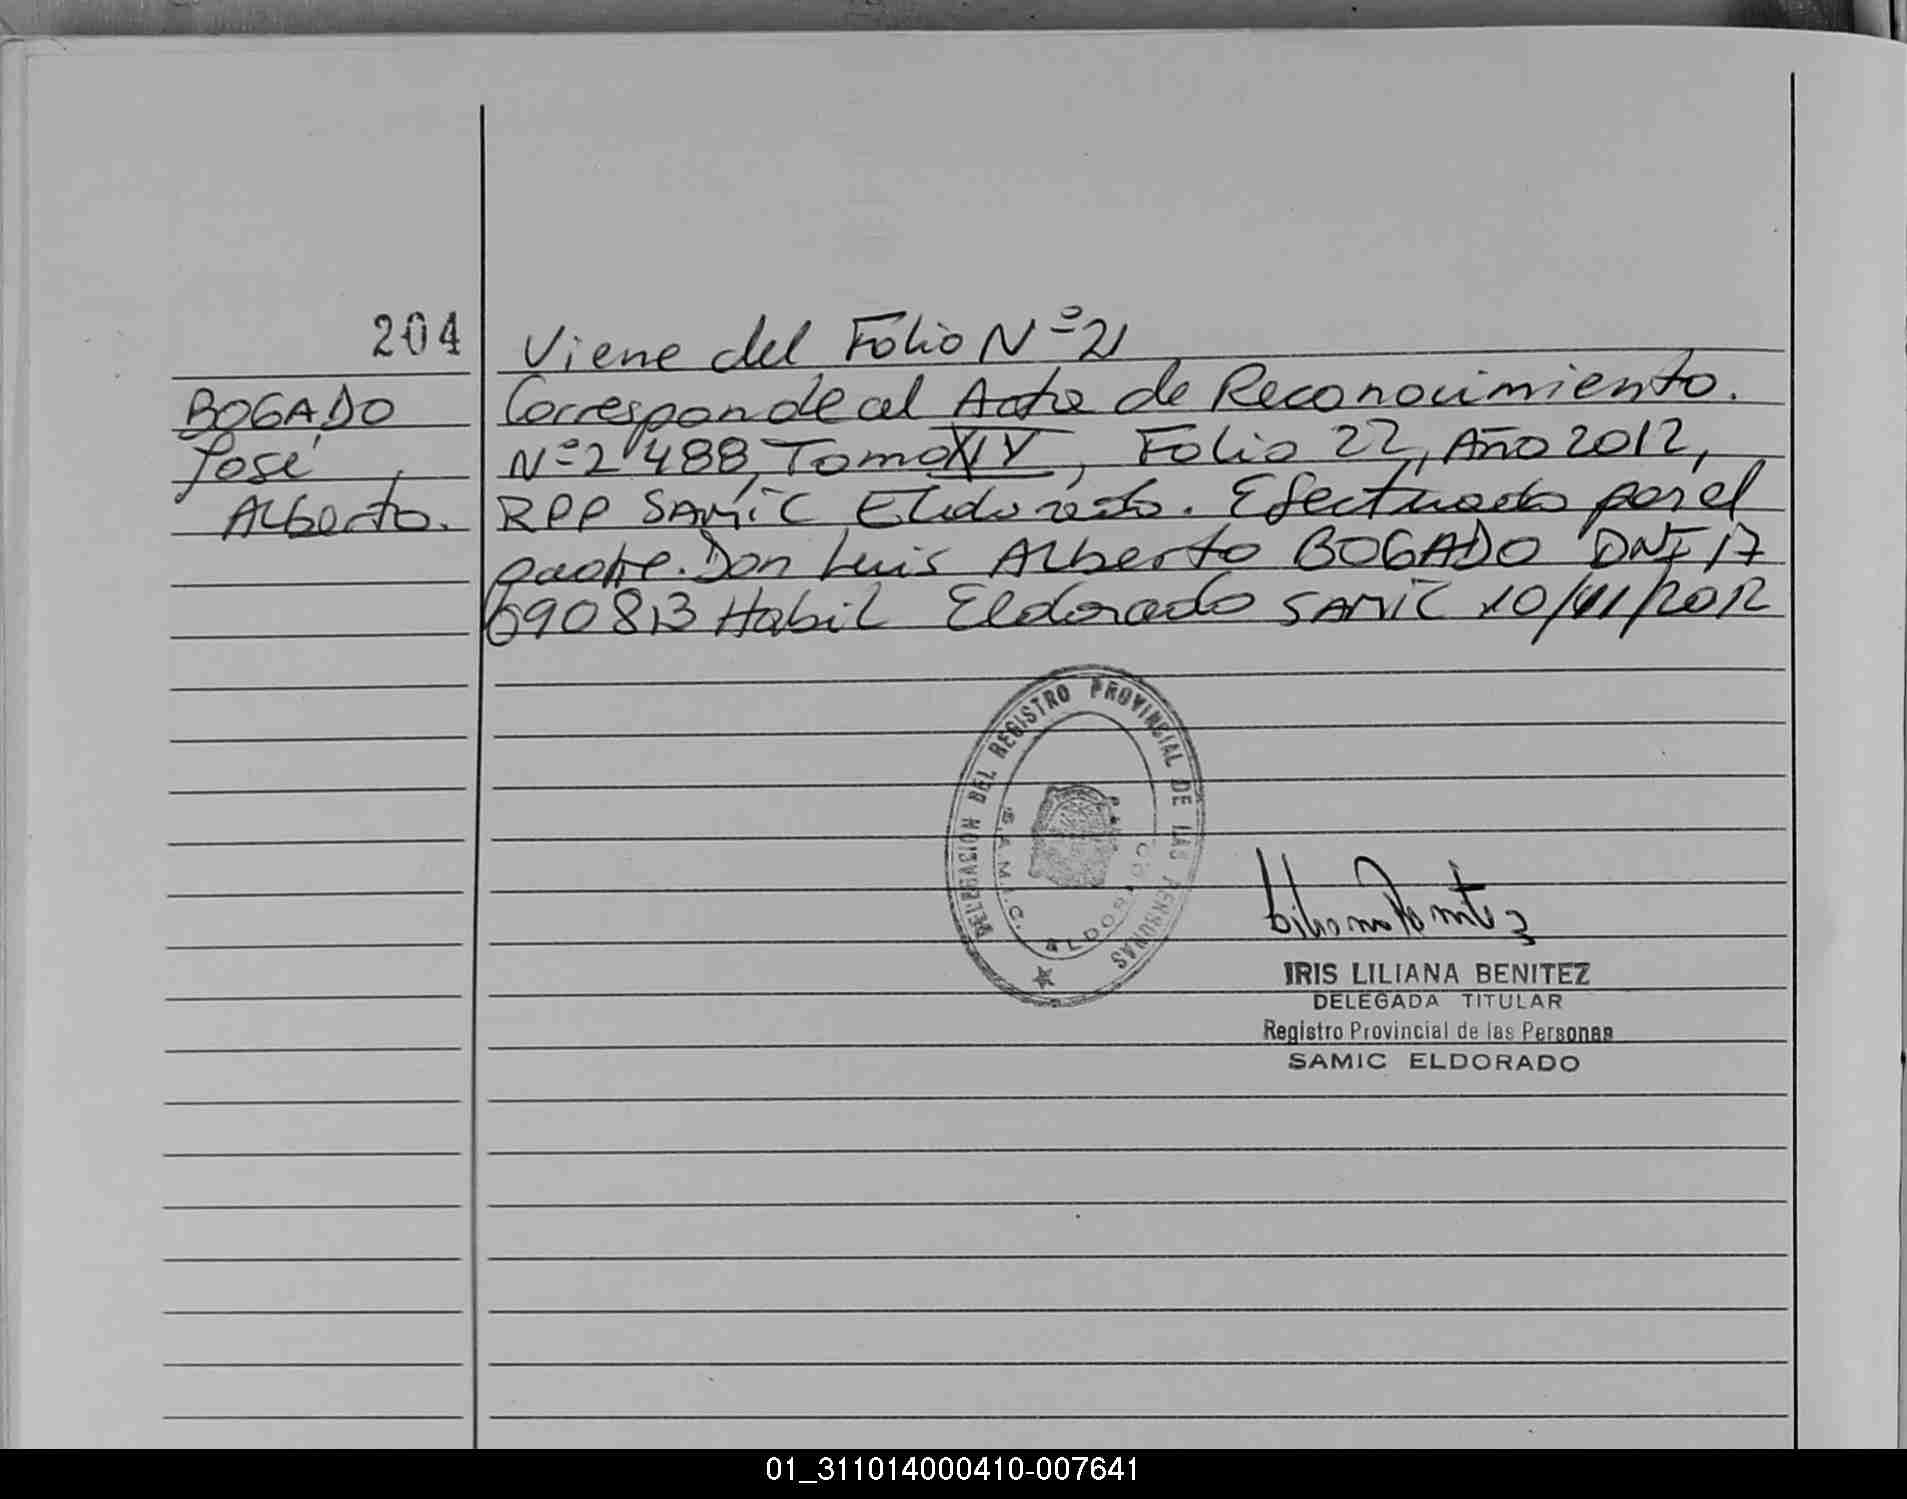 204
Viene del Folio Nº 21
BOGADO
José
Alberto.
Corresponde al Acta de Reconocimiento.
Nº 2488, Tomo XIV, Folio 22, Año 2012,
RPP SAMIC Eldorado. Efectuado por el
padre. Don Luis Alberto BOGADO DNI 17
690813 Habil Eldorado SAMIC 10/11/2012
DELEGACION DEL REGISTRO PROVINCIAL DE LAS PERSONAS
S.A.M.I.C. ELDORADO
IRIS LILIANA BENITEZ
DELEGADA TITULAR
Registro Provincial de las Personas
SAMIC ELDORADO
01_311014000410-007641